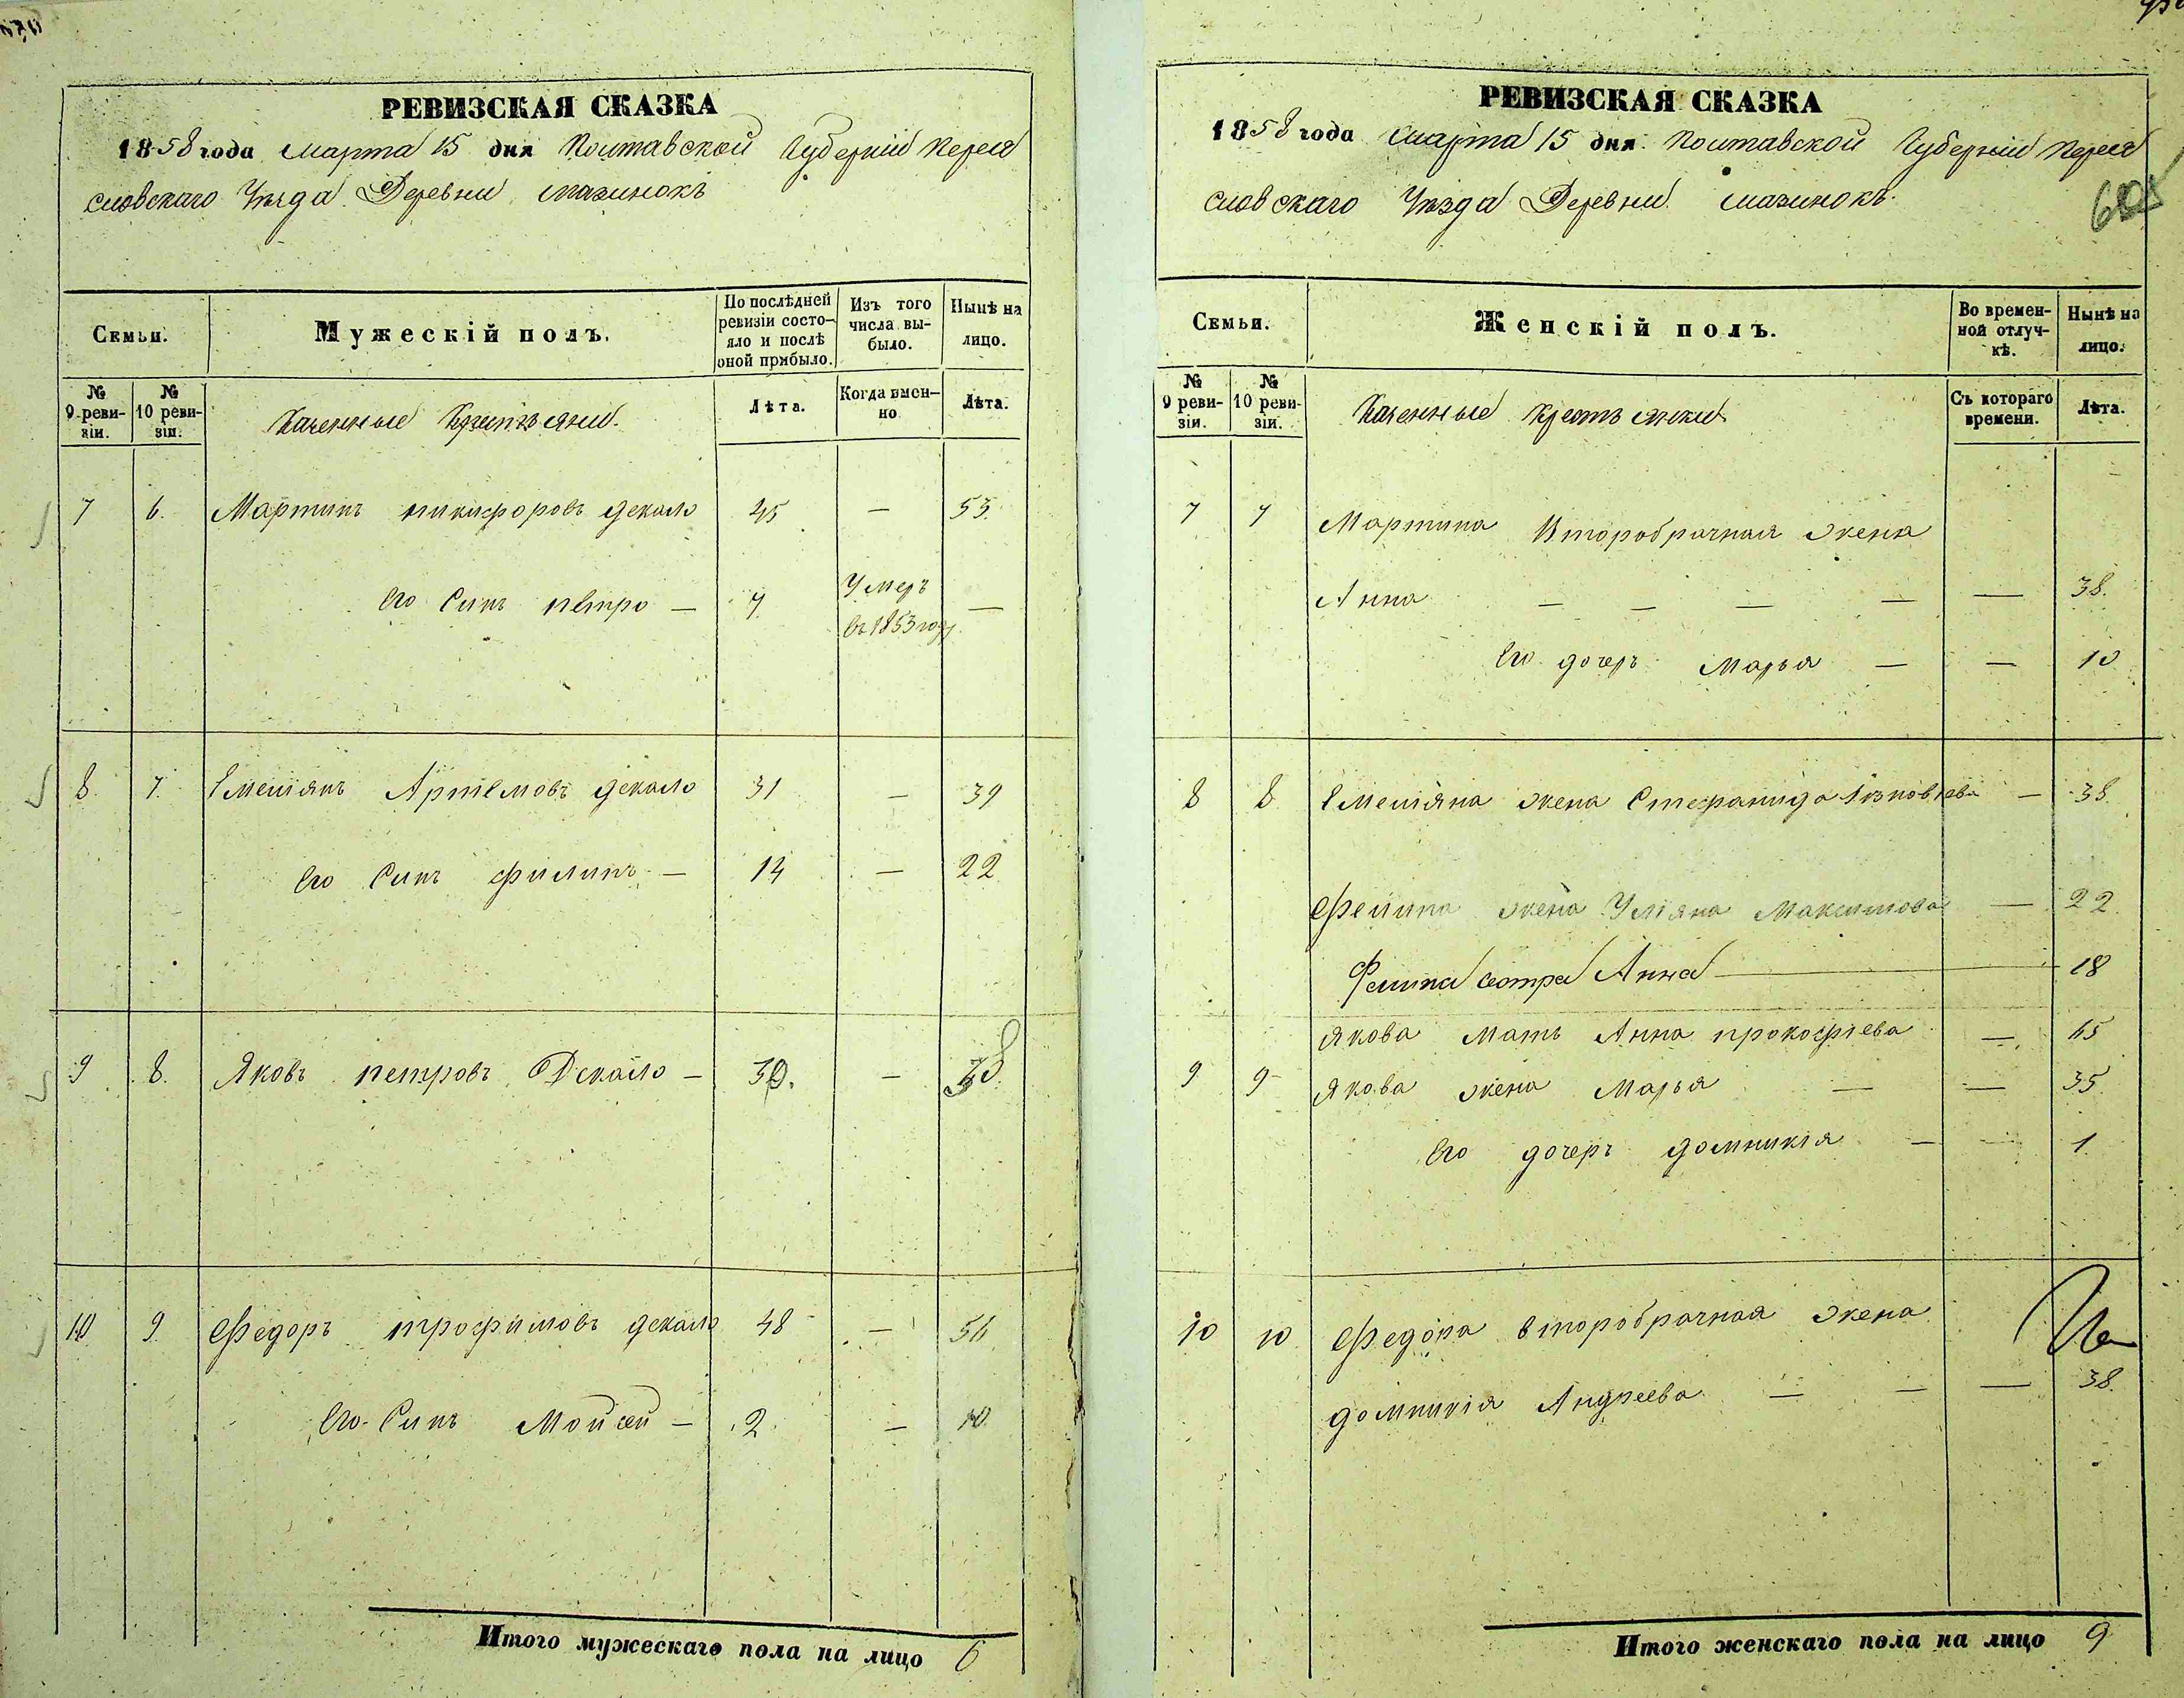 РЕВИЗСКАЯ СКАЗКА
1858 года Марта 15 дня Полтавской Губерніи Перея
словскаго Уезда Деревни Мазинокъ
Семьи.
Мужескій полъ.
По послѣдней ревизіи состояло и послѣ оной прибыло.
Изъ того числа выбыло.
Нынѣ на лицо.
№ 9 ревизіи.
№ 10 ревизіи.
Казенные Крестьяни.
Лѣта.
Когда именно
Лѣта.
7 6. Мартинъ никифоровъ декало 45 — 53.
Его Синъ петро — 7. Умеръ въ 1853 году —
8. 7. Емелiянъ Артемовъ декало 31 — 39
Его Синъ Филипъ — 14 — 22
9 8. Яковъ петровъ Декало — 30. — 38.
10 9. Федоръ трофимовъ декало 48 — 56
Его Синъ Мойсей — 2 — 10
Итого мужескаго пола на лицо 6
РЕВИЗСКАЯ СКАЗКА
1858 года Марта 15 дня Полтавской Губерніи Перея
словскаго Уѣзда Деревни Мазинокъ.
Семьи.
Женскій полъ.
Во временной отлучкѣ.
Нынѣ на лицо.
№ 9 ревизіи.
№ 10 ревизіи.
Казенные крестьянки
Съ котораго времени.
Лѣта.
7 7 Мартина Второбрачная жена
Анна — — — — — 38.
Его дочеръ Марья — — 10
8 8 Емелiяна жена Стефанида — 38.
Фелипа жена Улiяна Максимова — 22.
Филипа сестра Анна 18
Якова Мать Анна прокофiева — 65
9 9 Якова жена Марья — — 35
Его дочеръ домникiя — — 1.
10 10 Федора второбрачная жена
домникiя Андреева — — — 38.
Итого женскаго пола на лицо 9